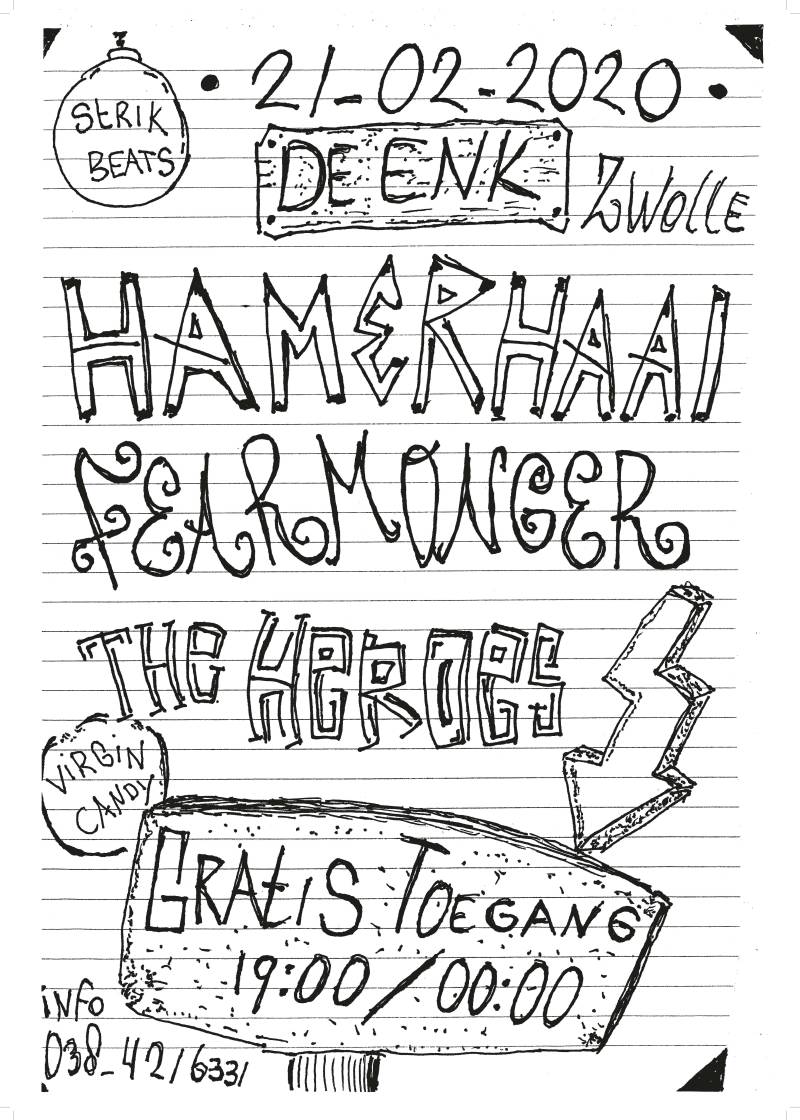 StRIK
BEATS
• 21-02-2020 •
DE ENK
ZWOLLE
HAMERHAAI
FEARMONGER
THE HEROES
VIRGIN
CANDY
GRAtiS TOEGANG
19:00/00:00
iNFO
038-4216331